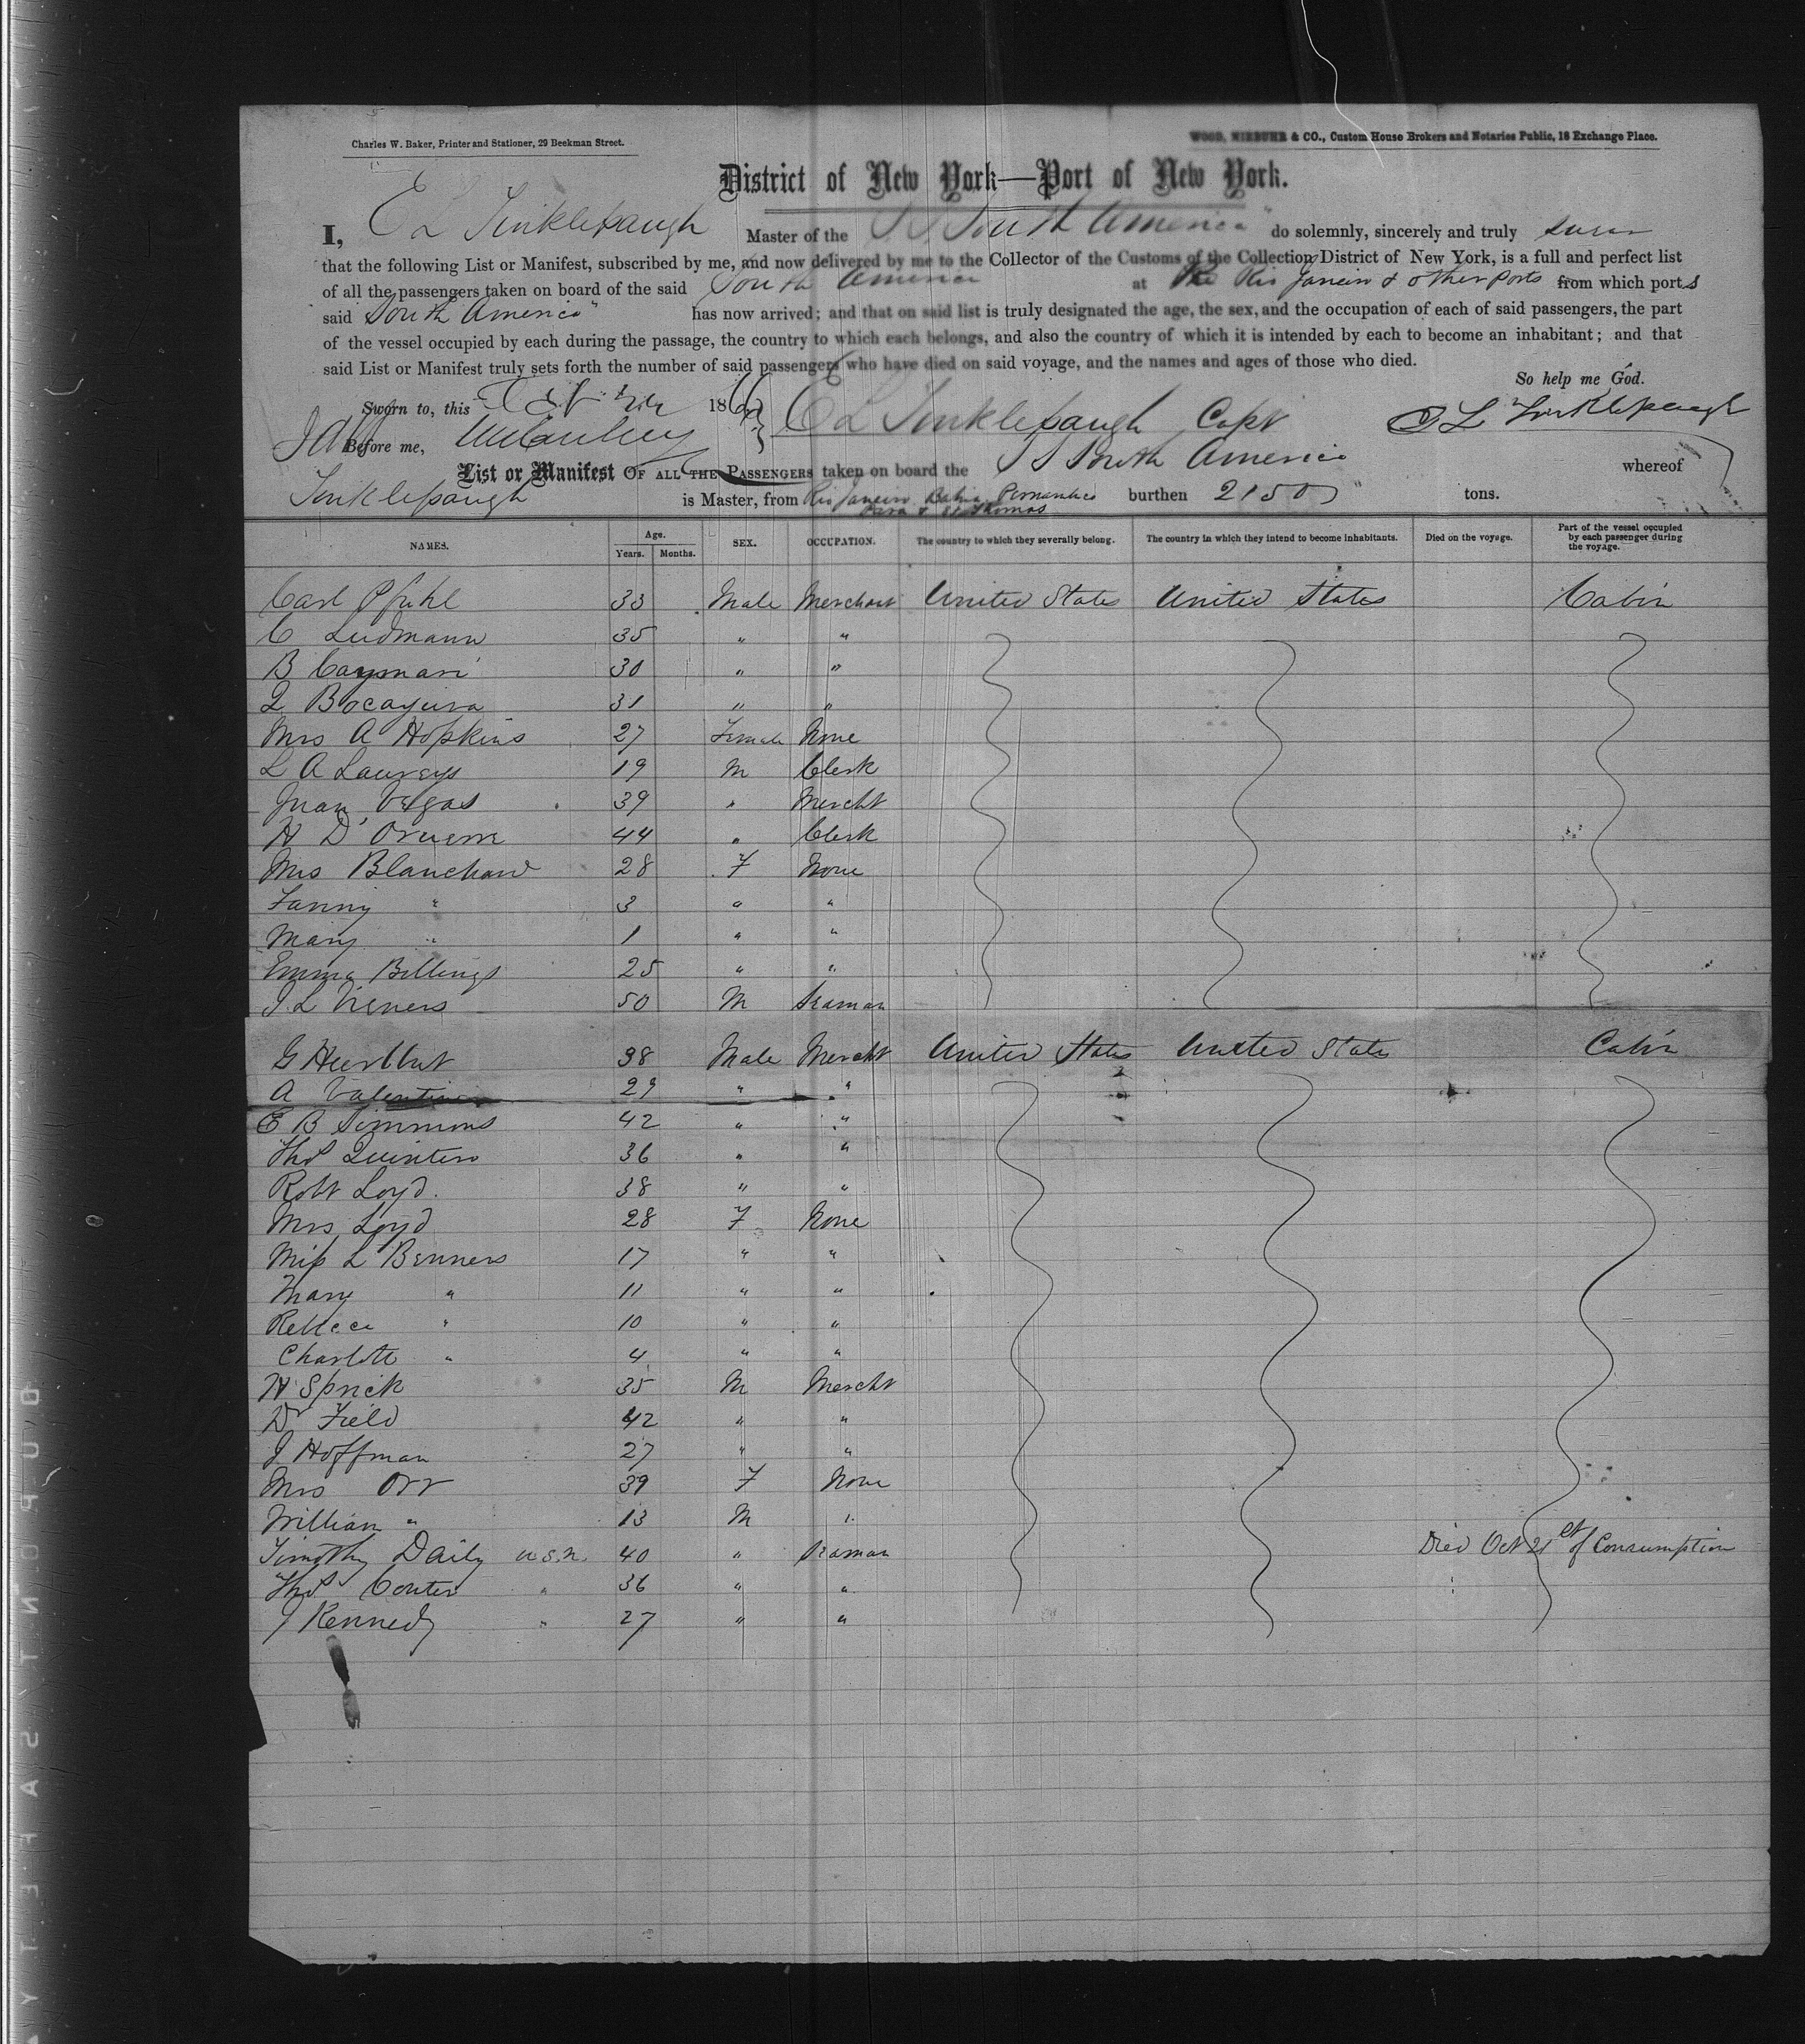 Charles W. Baker, Printer and Stationer, 29 Beekman Street.
WOOD, NIEBUHR & CO., Custom House Brokers and Notaries Public, 18 Exchange Place.
District of New York—Port of New York.
I, E L Tinklepaugh Master of the S S South America" do solemnly, sincerely and truly swear
that the following List or Manifest, subscribed by me, and now delivered by me to the Collector of the Customs of the Collection District of New York, is a full and perfect list
of all the passengers taken on board of the said South America at Rio Janeiro & other ports from which ports
said South America" has now arrived; and that on said list is truly designated the age, the sex, and the occupation of each of said passengers, the part
of the vessel occupied by each during the passage, the country to which each belongs, and also the country of which it is intended by each to become an inhabitant; and that
said List or Manifest truly sets forth the number of said passengers who have died on said voyage, and the names and ages of those who died.
So help me God.
Sworn to, this 1866 E L Tinklepaugh Capt E L Tinklepaugh
Before me,
List or Manifest OF ALL THE PASSENGERS taken on board the S S South America whereof
Tinklepaugh is Master, from Rio Janeiro Bahia Pernambco burthen 2150 " tons.
Para & St Thomas
NAMES. Age. Years. Months. SEX. OCCUPATION. The country to which they severally belong. The country in which they intend to become inhabitants. Died on the voyage. Part of the vessel occupied by each passenger during the voyage.
Carl Pfuhl 33 Male Merchant United States United States Cabin
C Ludmann 35 " "
B Caymari 30 " "
Q Bocayuva 31 " "
Mrs A Hopkins 27 Female None
L A Laureys 19 M Clerk
Juan Vegas 39 " Mercht
H D 44 " Clerk
Mrs Blanchard 28 F None
Fanny " 3 " "
Mary " 1 " "
Emma Billings 25 " "
J L 50 M Seaman
G Hurlbut 38 Male Mercht United States United States Cabin
A Valentine 29 " "
E B Simmons 42 " "
Thos Quintero 36 " "
Robt Loyd. 38 " "
Mrs Loyd 28 F None
Miss L Benners 17 " "
Mary " 11 " "
Rebecca " 10 " "
Charlotte " 4 " "
H Sprick 35 M Mercht
Dr Field 42 " "
J Hoffman 27 " "
Mrs Orr 39 F None
William " 13 M "
Timothy Daily U.S.N. 40 " Seaman Died Oct 21st of Consumption
Thos Couter " 36 " "
J Kennedy " 27 " "